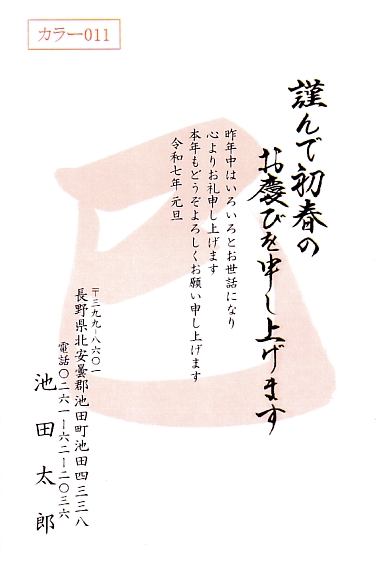 カラー011
謹んで初春の
お慶びを申し上げます
昨年中はいろいろとお世話になり
心よりお礼申し上げます
本年もどうぞよろしくお願い申し上げます
令和七年 元旦
〒三九九-八六〇一
長野県北安曇郡池田町池田四三三八
電話〇二六一-六二-二〇三六
池田太郎
巳